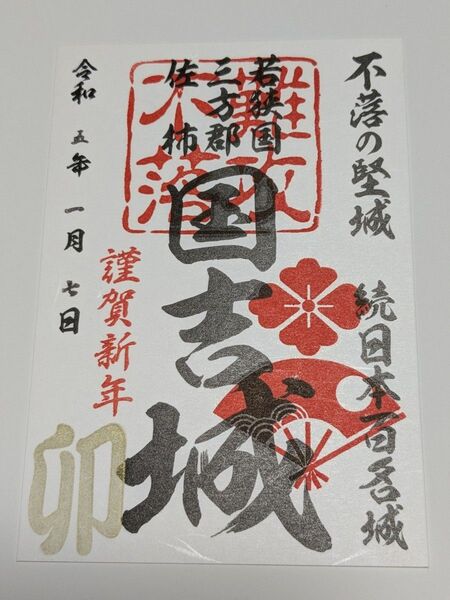 不落の堅城
続日本百名城
若狭国
三方郡
佐柿
難攻
不落
国吉城
謹賀新年
卯
令和五年一月七日